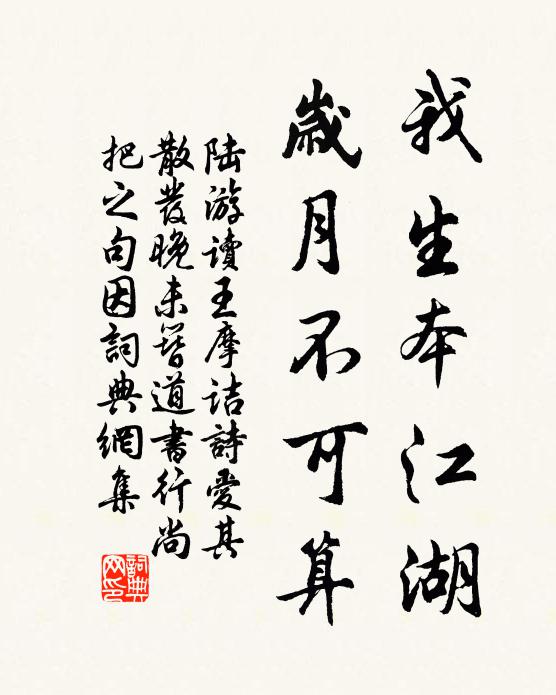 我生本江湖
歲月不可算
陆游讀王摩诘詩愛其
散發晚未簪道書行尚
把之句因詞典網集
詞典网印